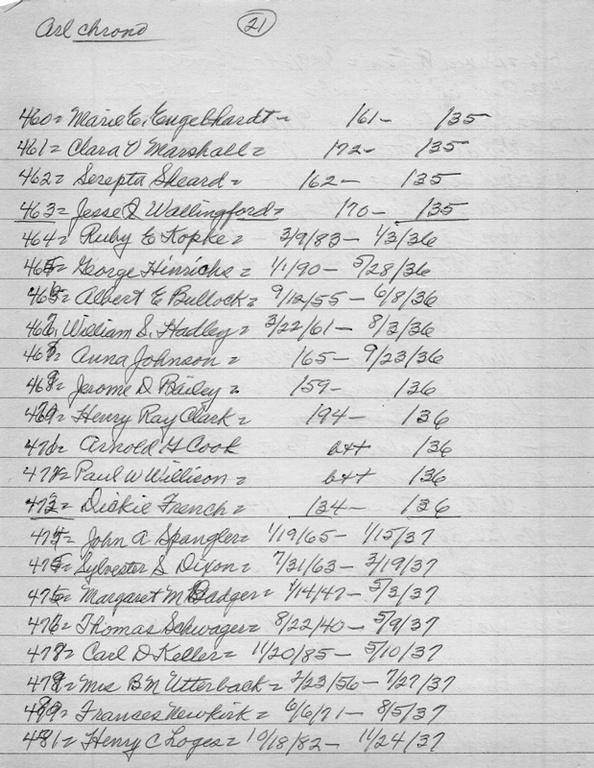 Arl chrono 21
460= Marie E. Engelhardt= /61- /35
461= Clara V Marshall= /72- /35
462= Serepta Sheard= /62- /35
463= Jesse Q Wallingford= /70- /35
464= Ruby E Kopke= 3/9/83- 1/3/36
465= George Hinrichs= 1/1/90- 5/28/36
466= Albert E Bullock= 9/12/55- 6/8/36
467= William S. Hadley= 3/22/61- 8/3/36
468= Anna Johnson= /65- 9/23/36
469= Jerome D Bailey= /59- /36
470= Henry Ray Clark= /94- /36
471= Arnold G Cook b++ /36
472= Paul W Willison= b++ /36
473= Dickie French= /34- /36
474= John A Spangler= 1/19/65- 1/15/37
475= Sylvester S Dixon= 7/31/63- 3/19/37
476= Margaret M Badger= 1/14/47- 5/3/37
477= Thomas Schwager= 8/22/40- 5/9/37
478= Carl D Keller= 11/20/85- 5/10/37
479= Mrs B M Utterback= 2/23/56- 7/27/37
480= Frances Newkirk= 6/6/71- 8/5/37
481= Henry C Loges= 10/18/82- 11/24/37